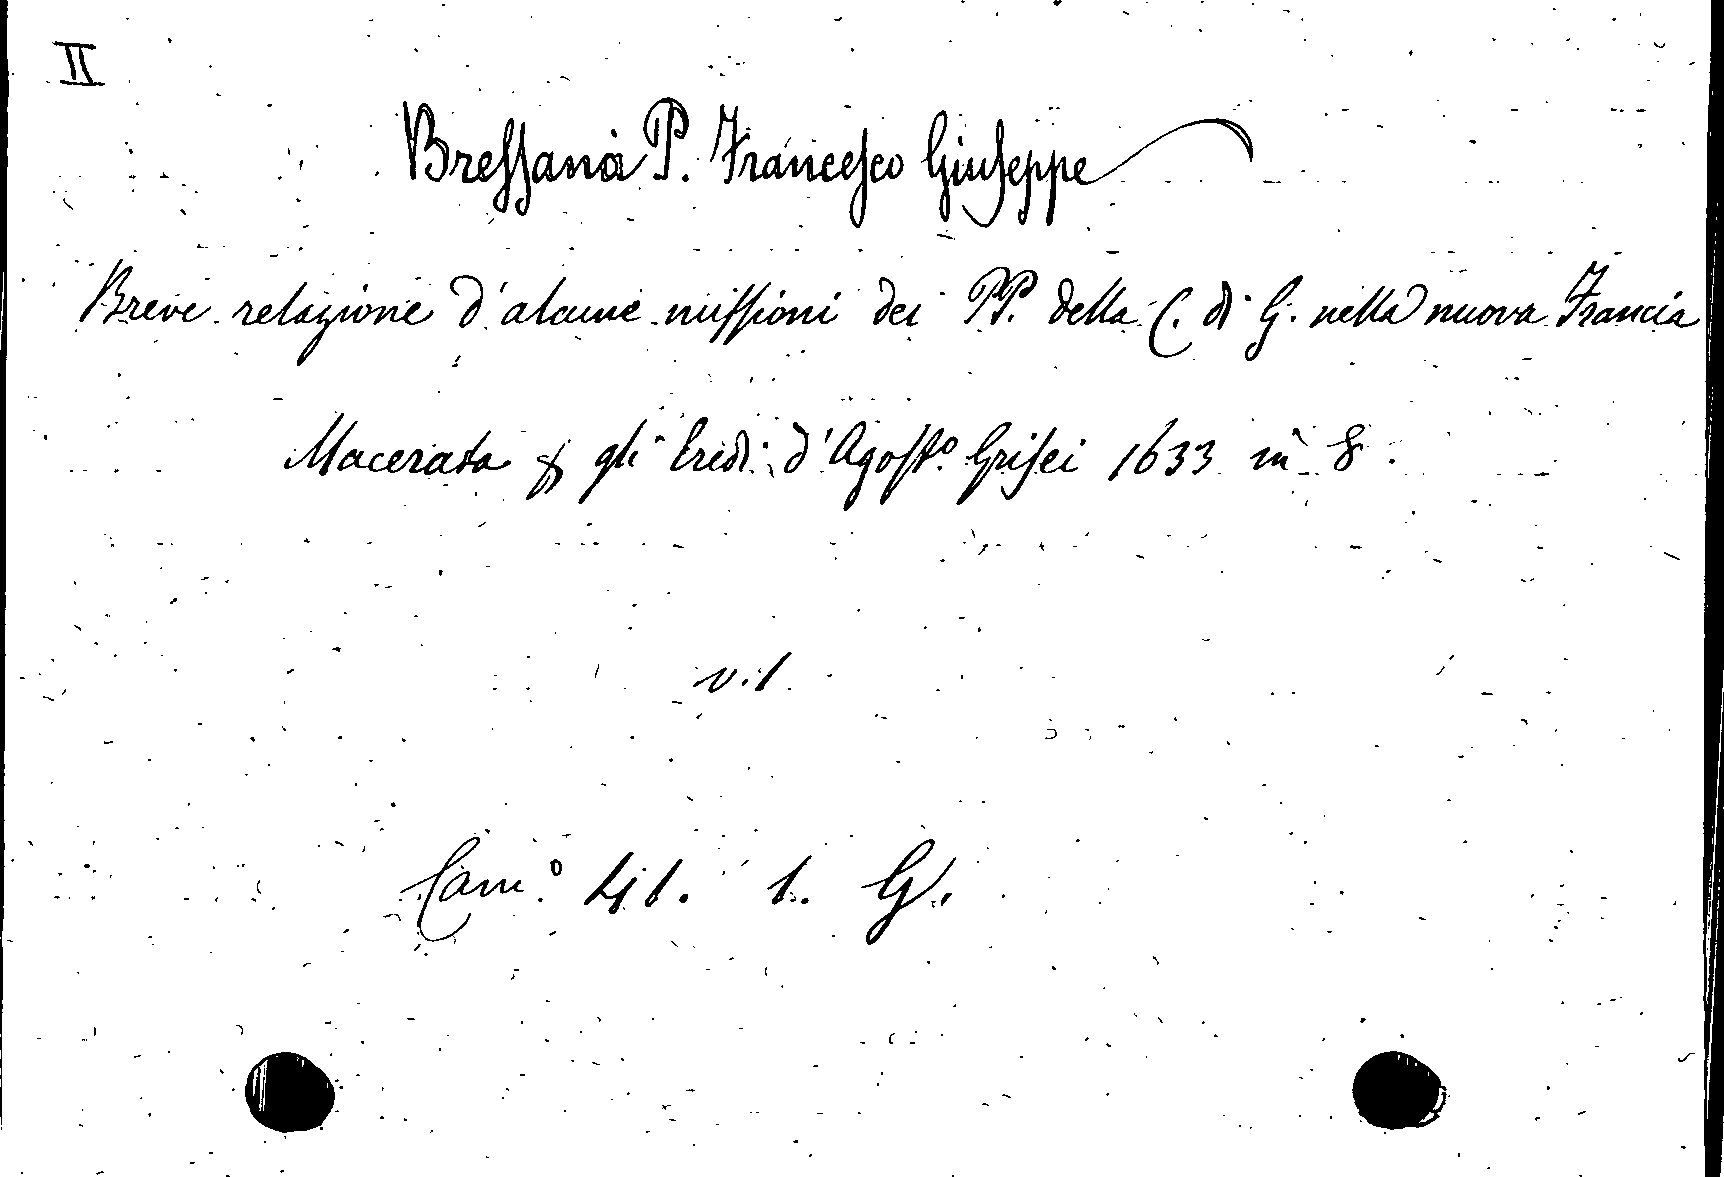 II
Bressana P. Francesco Giuseppe
Breve relazione d'alcune missioni dei PP. della C. di G. nella nuova Francia
Macerata gli Eredi d'Agost.º Grisei 1633 in 8.
v. 1
Cam.º 41. 1. G.